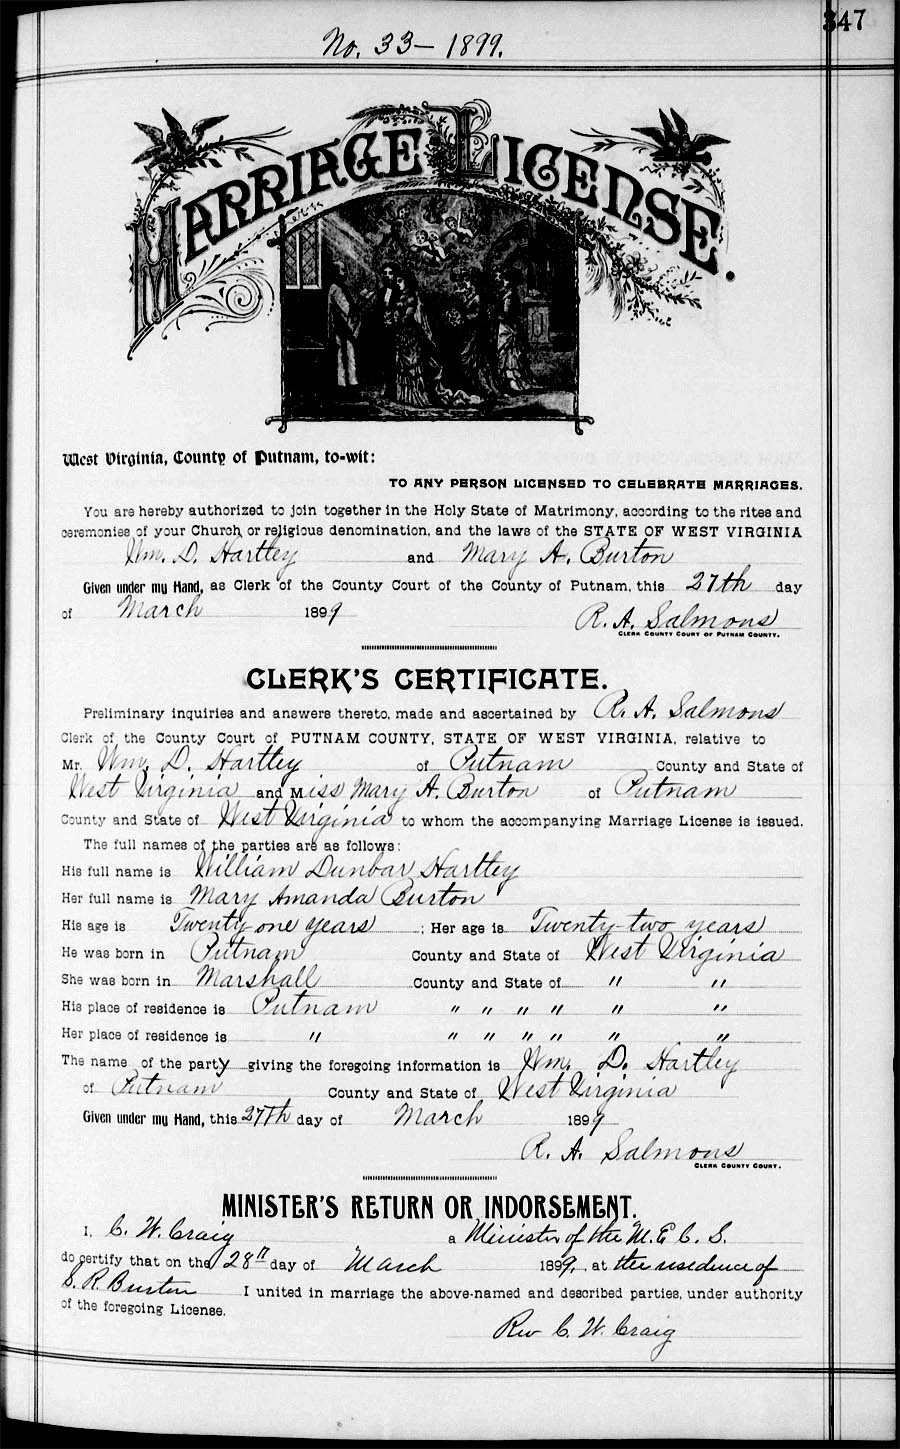 347
No. 33 – 1899.
MARRIAGE LICENSE.
West Virginia, County of Putnam, to-wit:
TO ANY PERSON LICENSED TO CELEBRATE MARRIAGES.
You are hereby authorized to join together in the Holy State of Matrimony, according to the rites and
ceremonies of your Church or religious denomination, and the laws of the STATE OF WEST VIRGINIA
Wm. D. Hartley and Mary A. Burton
Given under my Hand, as Clerk of the County Court of the County of Putnam, this 27th day
of March 1899
R. A. Salmons
CLERK COUNTY COURT OF PUTNAM COUNTY.
CLERK'S CERTIFICATE.
Preliminary inquiries and answers thereto, made and ascertained by R. A. Salmons
Clerk of the County Court of PUTNAM COUNTY, STATE OF WEST VIRGINIA, relative to
Mr. Wm. D. Hartley of Putnam County and State of
West Virginia and Miss Mary A. Burton of Putnam
County and State of West Virginia to whom the accompanying Marriage License is issued.
The full names of the parties are as follows:
His full name is William Dunbar Hartley
Her full name is Mary Amanda Burton
His age is Twenty one years ; Her age is Twenty-two years
He was born in Putnam County and State of West Virginia
She was born in Marshall County and State of " "
His place of residence is Putnam " " " " " "
Her place of residence is " " " " " " "
The name of the party giving the foregoing information is Wm. D. Hartley
of Putnam County and State of West Virginia
Given under my Hand, this 27th day of March 1899
R. A. Salmons
CLERK COUNTY COURT.
MINISTER'S RETURN OR INDORSEMENT.
I, C. W. Craig a Minister of the M. E. C. S.
do certify that on the 28th day of March 1899, at the residence of
S. R. Burton I united in marriage the above-named and described parties, under authority
of the foregoing License.
Rev C. W. Craig